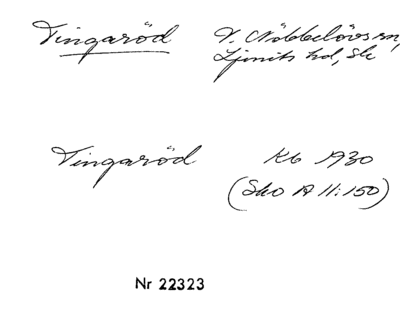 Tingaröd V. Nöbbelövs sn,
Ljunits hd, Sk
Tingaröd Kb 1930
(SkO A 11:150)
Nr 22323